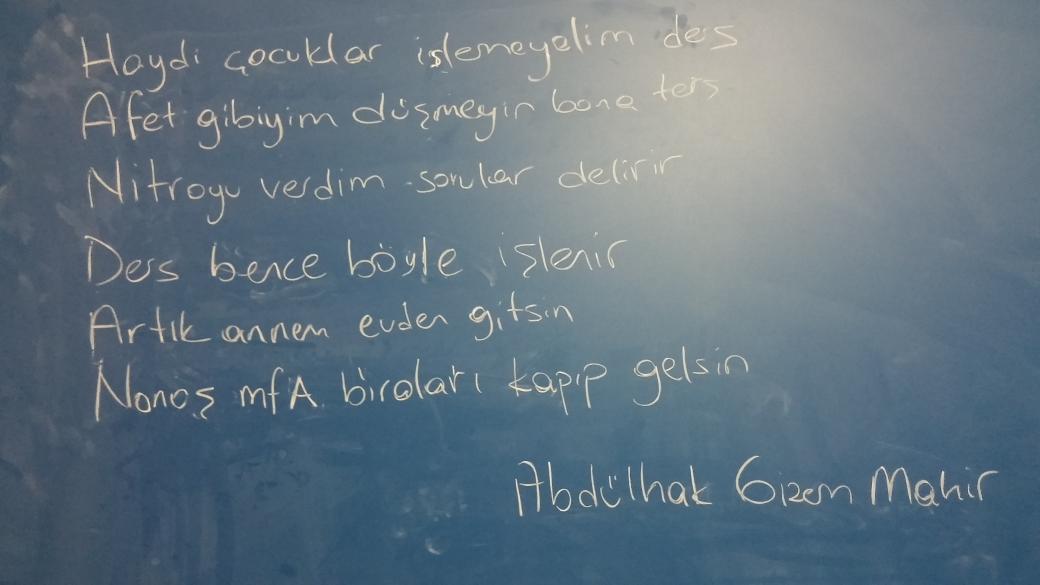 Haydi çocuklar işlemeyelim ders
Afet gibiyim düşmeyin bana ters
Nitroyu verdim sorular delirir
Ders bence böyle işlenir
Artık annem evden gitsin
Nonoş mfA biraları kapıp gelsin
Abdülhak Gizem Mahir